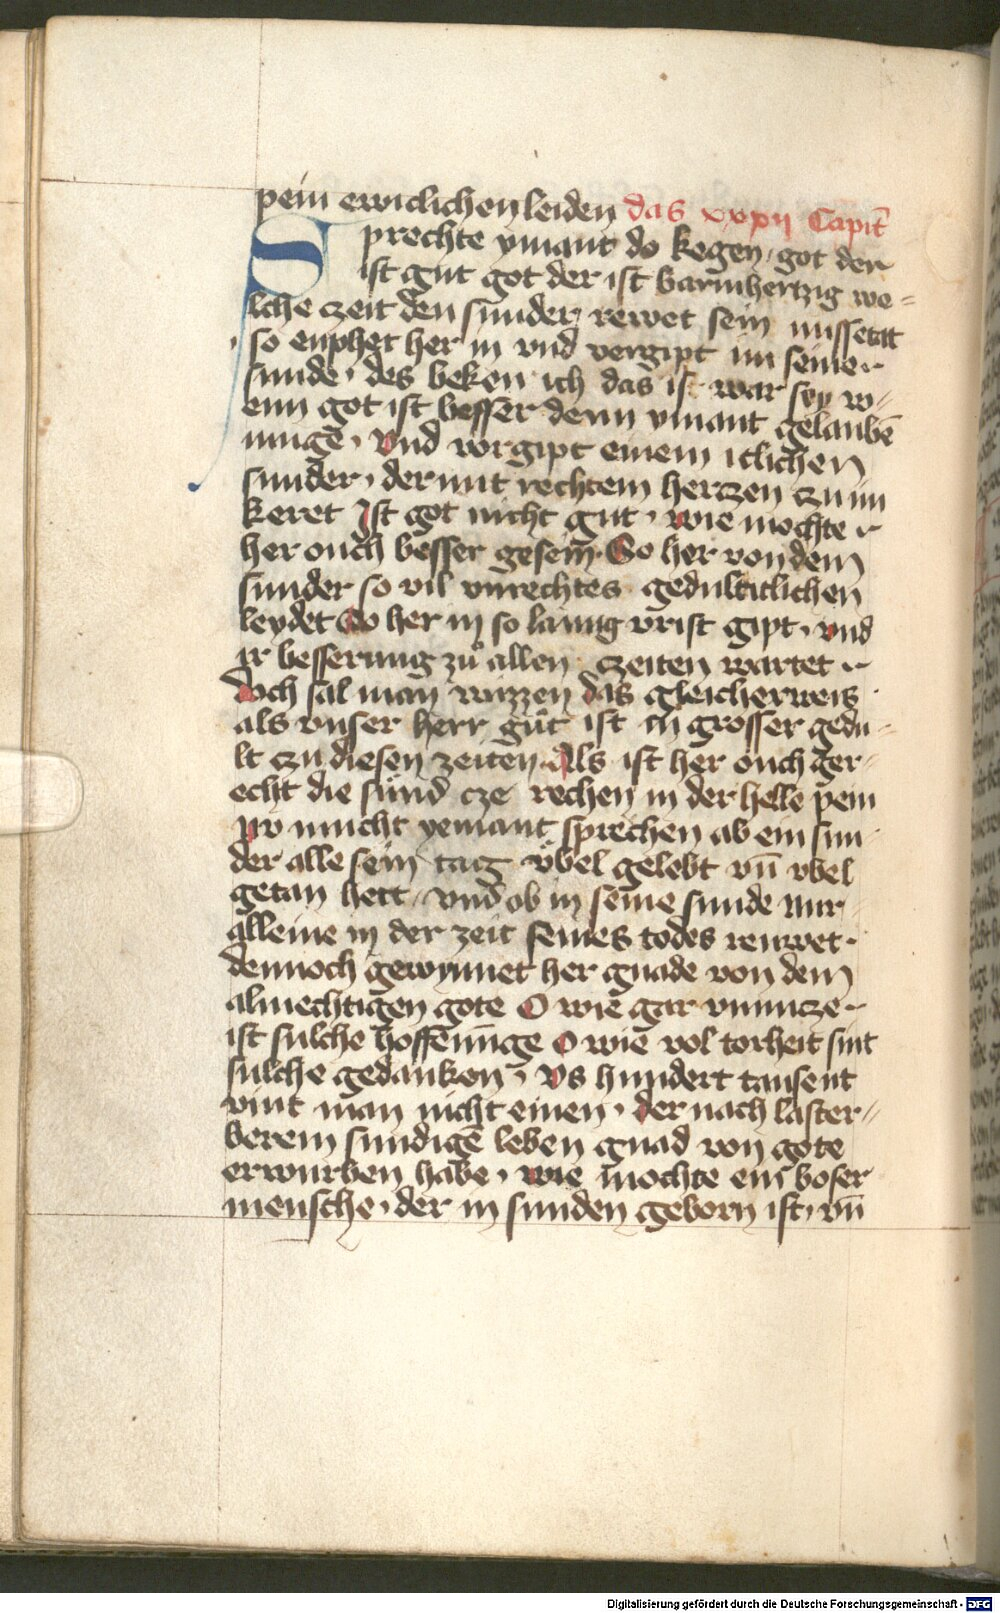 pein ewiclichen leiden das xxxii Capit̄
Sprechte ymant do kegen, got der
ist gut got der ist barmhertzig we=
lche czeit den sunder rewet sein missetat
so enphet her in vnd vergipt im seine
sunde · des beken ich das is war sey w=
enn got ist besser denn ymant gelaubē
muge · vnd vorgipt einem iclichen
sunder · der mit rechtem hertzen czu im
keret Ist got nicht gut · wie mochte
her ouch besser gesein · So her von dem
sunder so vil vnrechtes gedulticlichen
leydet So her in so lanng vrist gipt · vnd
ir besserung zu allen czeiten wartet
doch sal man wizzen das gleicherweis
als vnser herr gut ist in grosser gedu=
lt czu diesen zeiten · Als ist her ouch ger=
echt die sund cze rechen in der helle pein
Nv mucht yemant sprechen ab ein sun=
der alle sein tag vbel gelebt vn̄ vbel
getan hett / vnd ob in seine sunde nur
alleine in der zeit seines todes rewet ·
dennoch gewynnet her gnade von dem
almechtigen gote O wie gar vnnucze
ist sulche hoffenūge O wie vol torheit sint
sulche gedanken · Vs hundert tausent
vint man nicht einen · der nach laster=
berem sundigē leben gnad von gote
erwurben habe · wie mochte ein boser
mensche · der in sunden geborn ist · vn̄
Digitalisierung gefördert durch die Deutsche Forschungsgemeinschaft - DFG